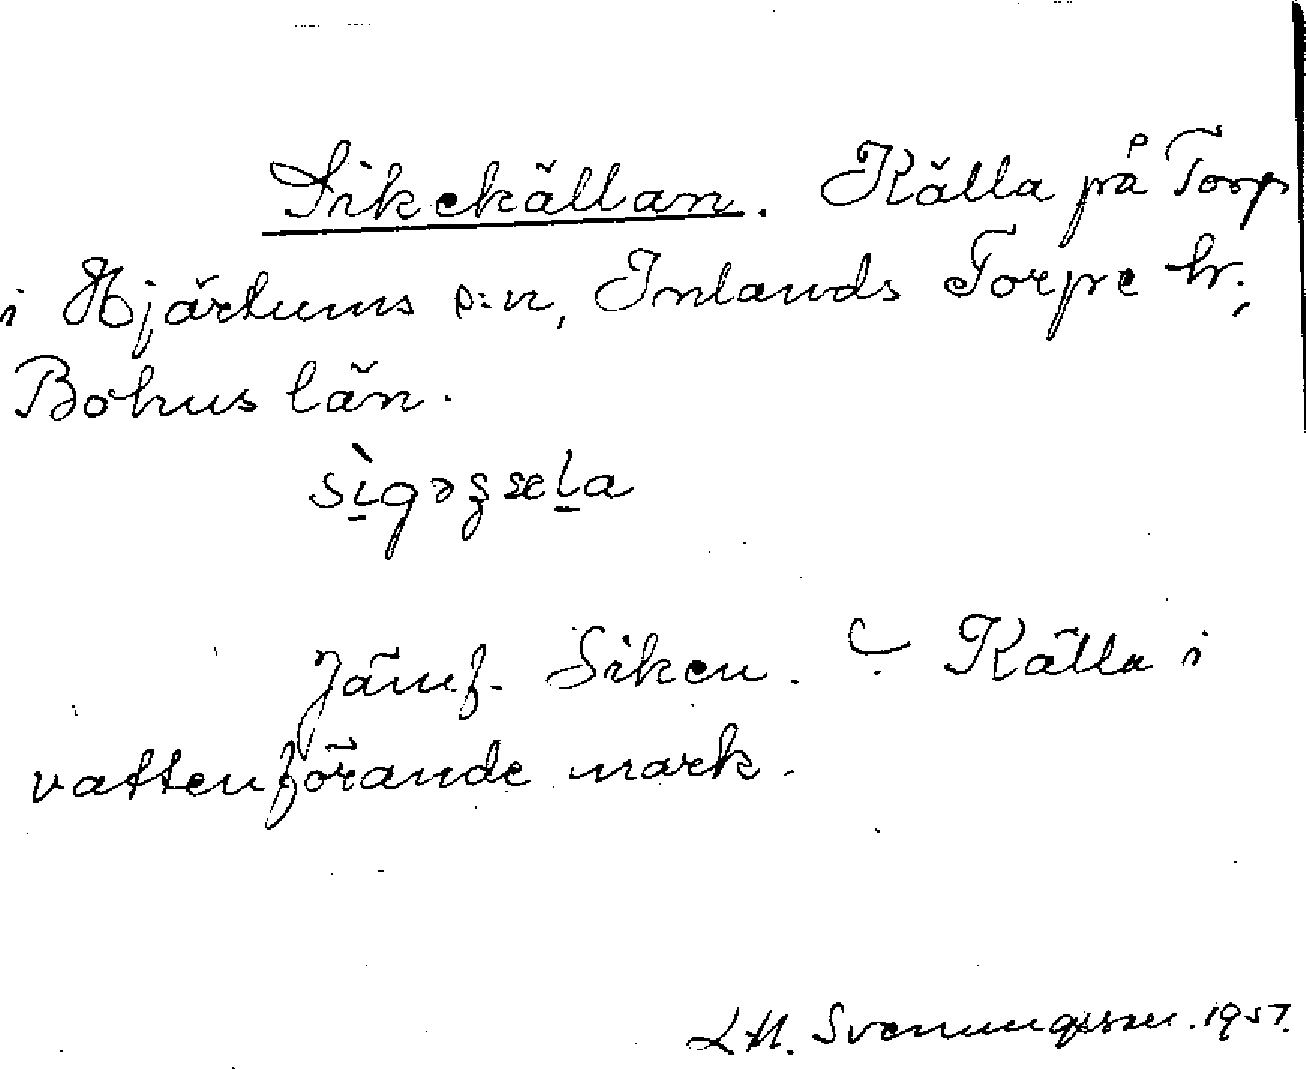 Sikekällan. Källa på Torp
i Hjärtums s:n, Inlands Torpe hr,
Bohus län.
sìgəʂæla
Jämf. Siken. Källa i
vattenförande mark.
L.M. Svenungsson. 1957.